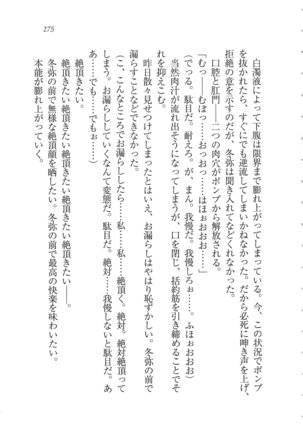 275
白濁液によって下腹は限界まで膨れ上がってしまっている。今、この状況でポンプ
を抜かれたら、すぐにでも逆流してしまいかねなかった。だから必死に呻き声を上げ、
拒絶の意を示すのだが、冬弥は聞き入れてなどくれなかった。
口腔と肛門――二つの肉穴がポンプから解放される。
「むっ――むぼっ……おっおっ……はほぉおおお……」
（でっる。駄目だ。耐えろ。が、まん。我慢だ。我慢しろぉ……。ふほぉおおお）
当然肉汁が流れ出そうになってしまうが、口を閉じ、括約筋を引き締めることでそ
れを抑えこむ。
昨日散々見せつけてしまったとはいえ、お漏らしはやはり恥ずかしい。冬弥の前で
漏らすことなどできなかった。
（こ、こんなところでお漏らししたら……私……私……絶頂く。絶対、絶対絶頂って
しまう。お漏らししていくなんて変態だ。駄目だ。絶対……我慢しないと駄目だ。あ
あ……でも……でもぉ――）
絶頂きたい絶頂きたい絶頂きたい絶頂きたい――。
冬弥の前で無様な絶頂顔を晒したい。冬弥の前で最高の快楽を味わいたい。
本能が膨れ上がっていく。